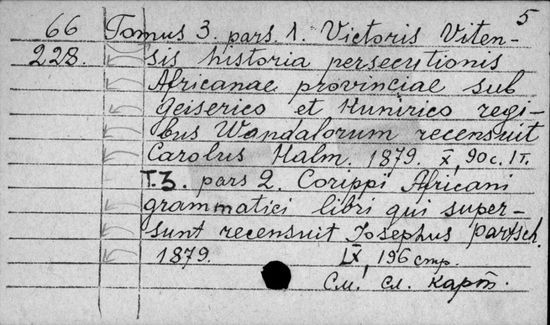 5
66 Tomus 3. pars. 1. Victoris Viten-
228. sis historia persecutionis
Africanae provinciae sub
Geiserico et Hunirico regi-
bus Wandalorum recensuit
Carolus Halm. 1879. X, 90 c. 1 т.
T.3. pars 2. Corippi Africani
grammatici libri qui super-
sunt recensuit Josephus Partsch.
1879. LX, 196 стр.
См. сл. карт.